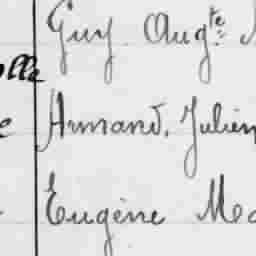 Guy Aug.te
Armand, Julien
Eugène